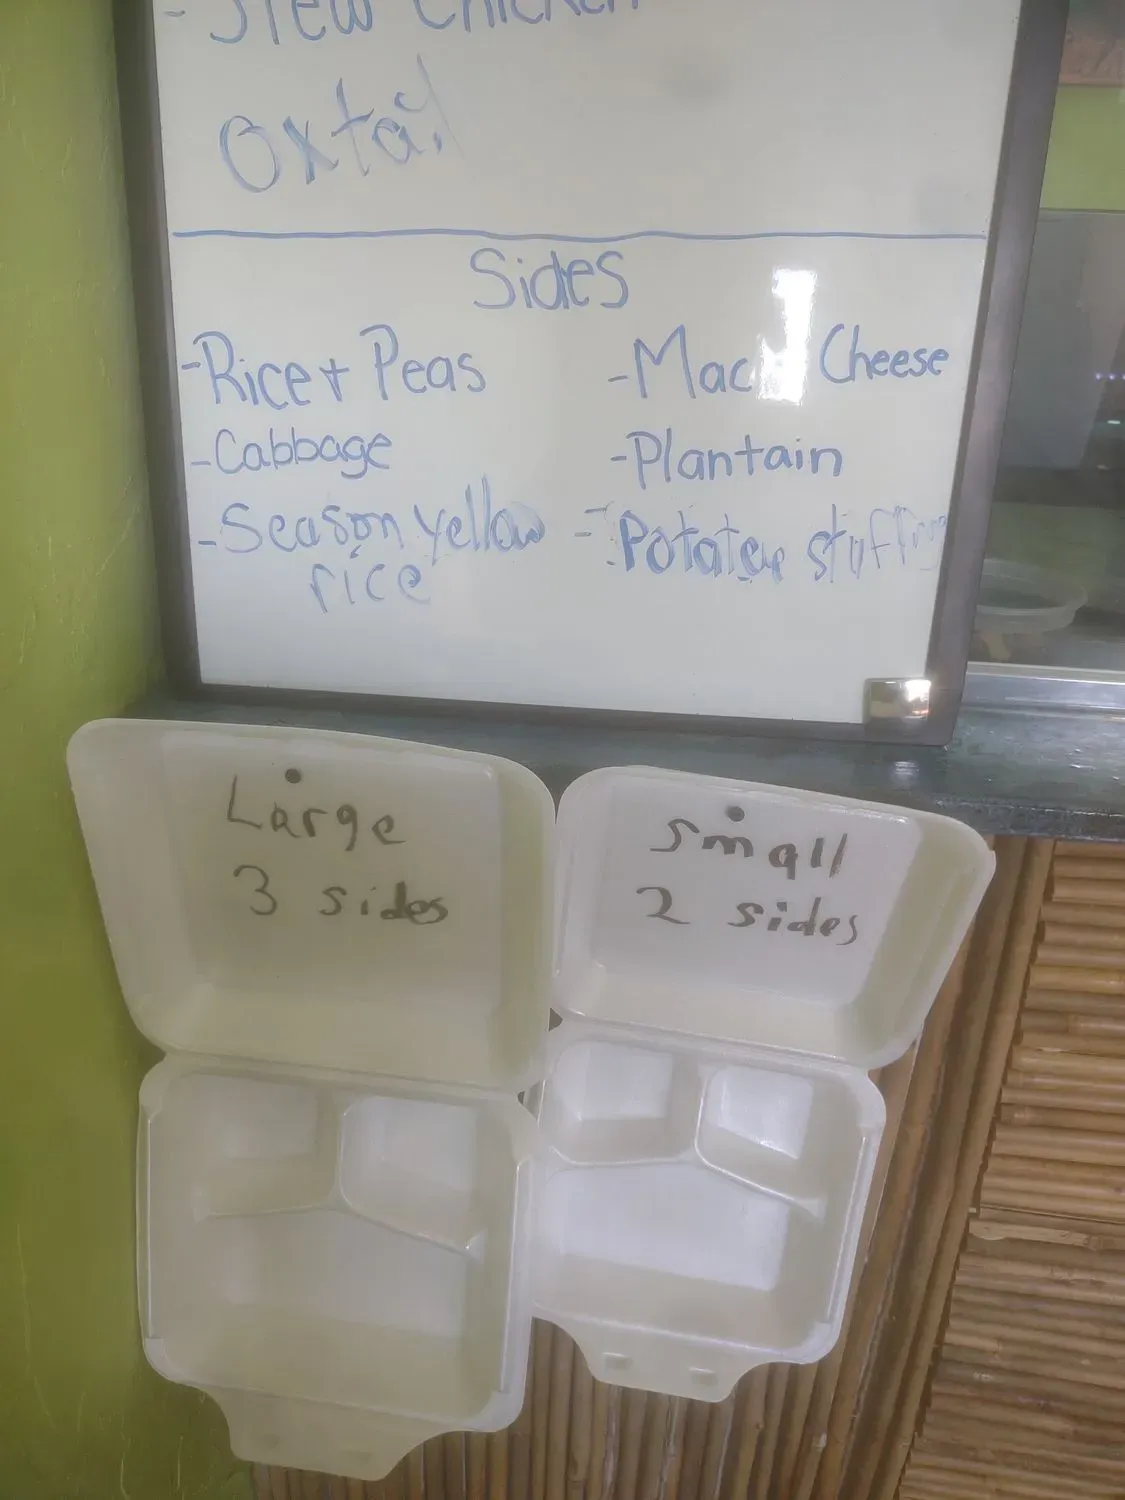 - Stew Chicken
Oxtail
Sides
- Rice + Peas
- Cabbage
- Season yellow
rice
- Mac Cheese
- Plantain
- Potatoe stuffing
Large
3 sides
Small
2 sides